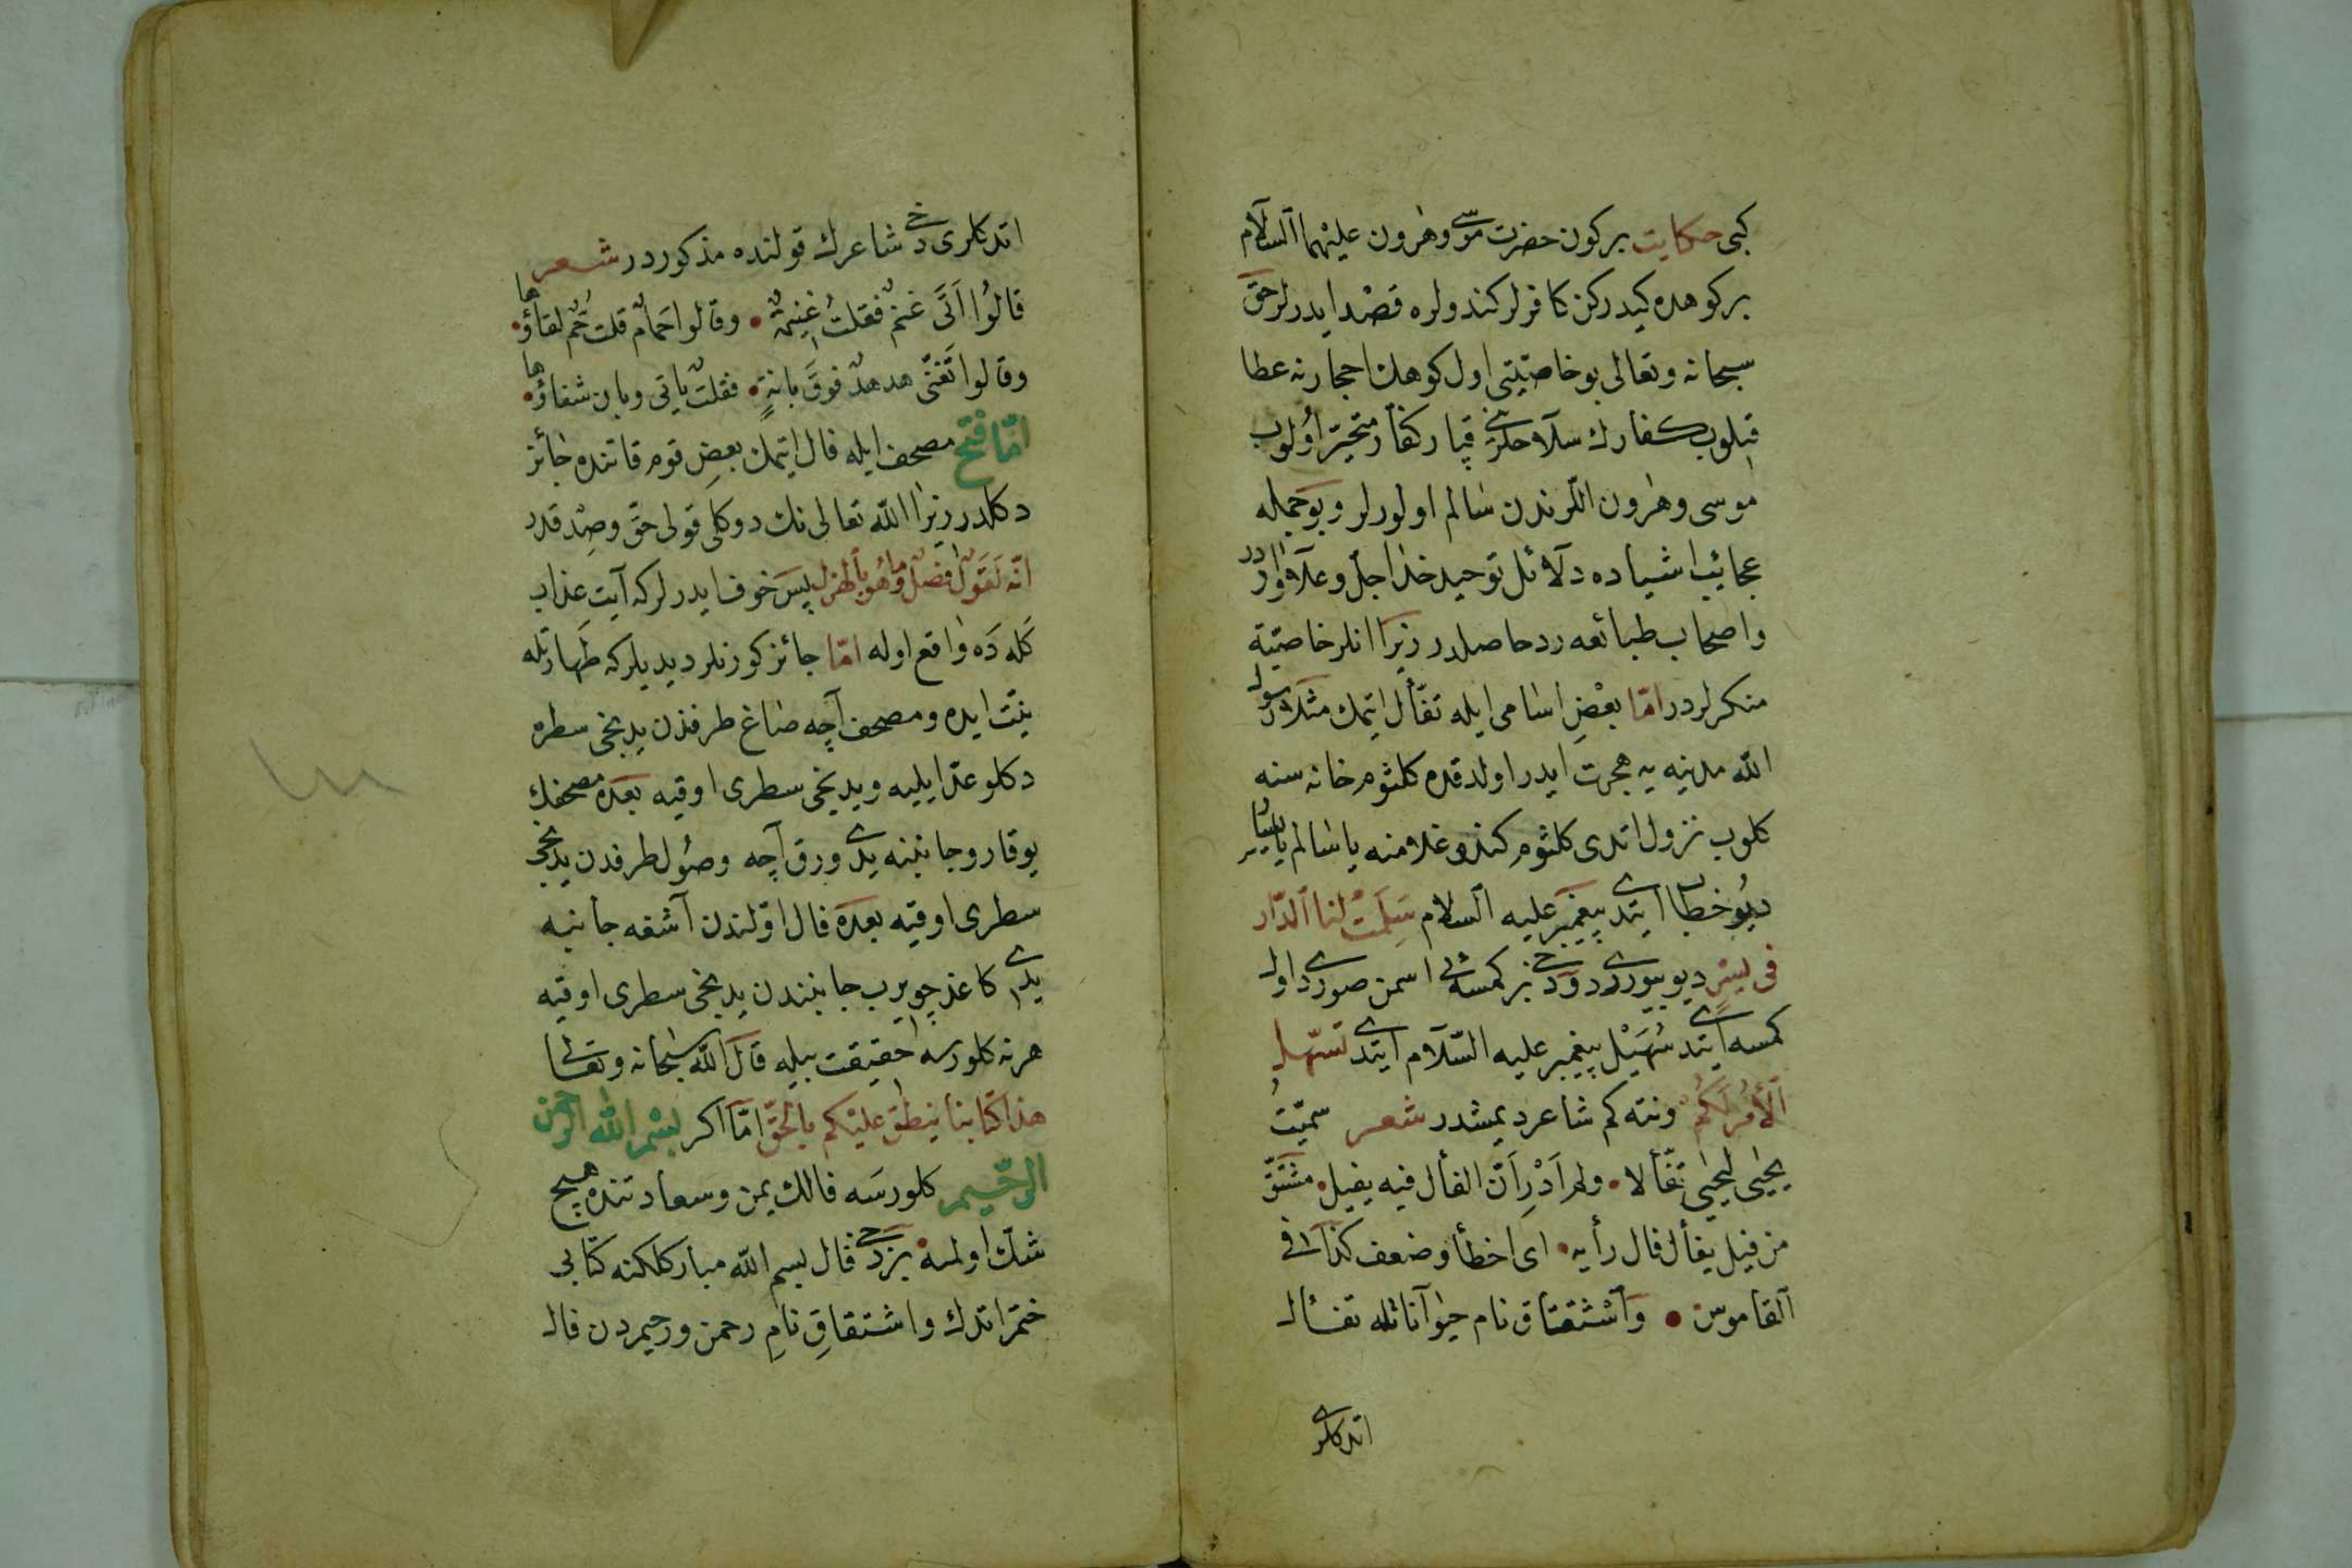 كبى حكايت بركون حضرت موسى وهرون عليهما السلام
بر كوهده كيدركن كافرلر كندولره قصد ايدرلر حق
سبحانه وتعالى بو خاصيتى اول كوهك احجارنه عطا
قيلوب كفارك سلاحلرينى قپار كفار متحير اولوب
موسى وهرون اللرندن سالم اولورلر و بو جمله
عجائب اشياده دلائل توحيد خدا جل وعلا واردر
واصحاب طبائعه رد حاصلدر زيرا انلر خاصيته
منكرلردر اما بعض اسامى ايله تفأل ايتمك مثلا رسول
الله مدينه يه هجرت ايدر اولدقده كلثوم خانه سنه
كلوب نزول اتدى كلثوم كندو غلامنه يا سالم يا يسار
ديو خطاب ايتدى پيغمبر عليه السلام سلمت لنا الدار
فى يسر ديو بيوردى ودخى بر كمسه نك اسمن صوردى اول
كمسه ايتدى سهيل پيغمبر عليه السلام ايتدى تسهل
الأمر لكم ونته كم شاعر ديمشدر شعر سميت
يحيى ليحيى تفألا • ولم أدر أن الفأل فيه يفيل • مشتق
من فيل يقال فال رأيه • اى اخطأ وضعف كذا فى
القاموس • واشتقاق نام حيوانات‍له تفأل
اتدكلرى
اتدكلرى دخى شاعرك قولنده مذكوردر شعر
قالوا اتى غنم فقلت غنيمة • وقالوا حمام قلت حم لقاؤها •
وقالوا تغنى هدهد فوق بانة • فقلت ياتى وبان شفاؤها •
اما فتح مصحف ايله فال ايتمك بعض قوم قاتنده جائز
دكلدر زيرا الله تعالى نك دوكلى قولى حق وصدقدر
انه لقول فصل وما هو بالهزل پس خوف ايدرلر كه آيت عذاب
كله ده واقع اوله اما جائز كورنلر ديديلر كه طهارتله
نيت ايده ومصحف آچه صاغ طرفندن يدنجى سطره
دكلو عد ايليه ويدنجى سطرى اوقيه بعده مصحفك
يوقارو جانبنه يدى ورق آچه وصول طرفدن يدنجى
سطرى اوقيه بعده فال اولندن آشغه جانبه
يدى كاغد چويرب جانبندن يدنجى سطرى اوقيه
هر نه كلورسه حقيقت بيله قال الله سبحانه وتعالى
هذا كتابنا ينطق عليكم بالحق اما اكر بسم الله الرحمن
الرحيم كلورسه فالك يمن وسعادتنده هيچ
شك اولمه • بزدخى فال بسم الله مباركلكنه كتابى
ختم اتدك واشتقاق نام رحمن ورحيمدن فال